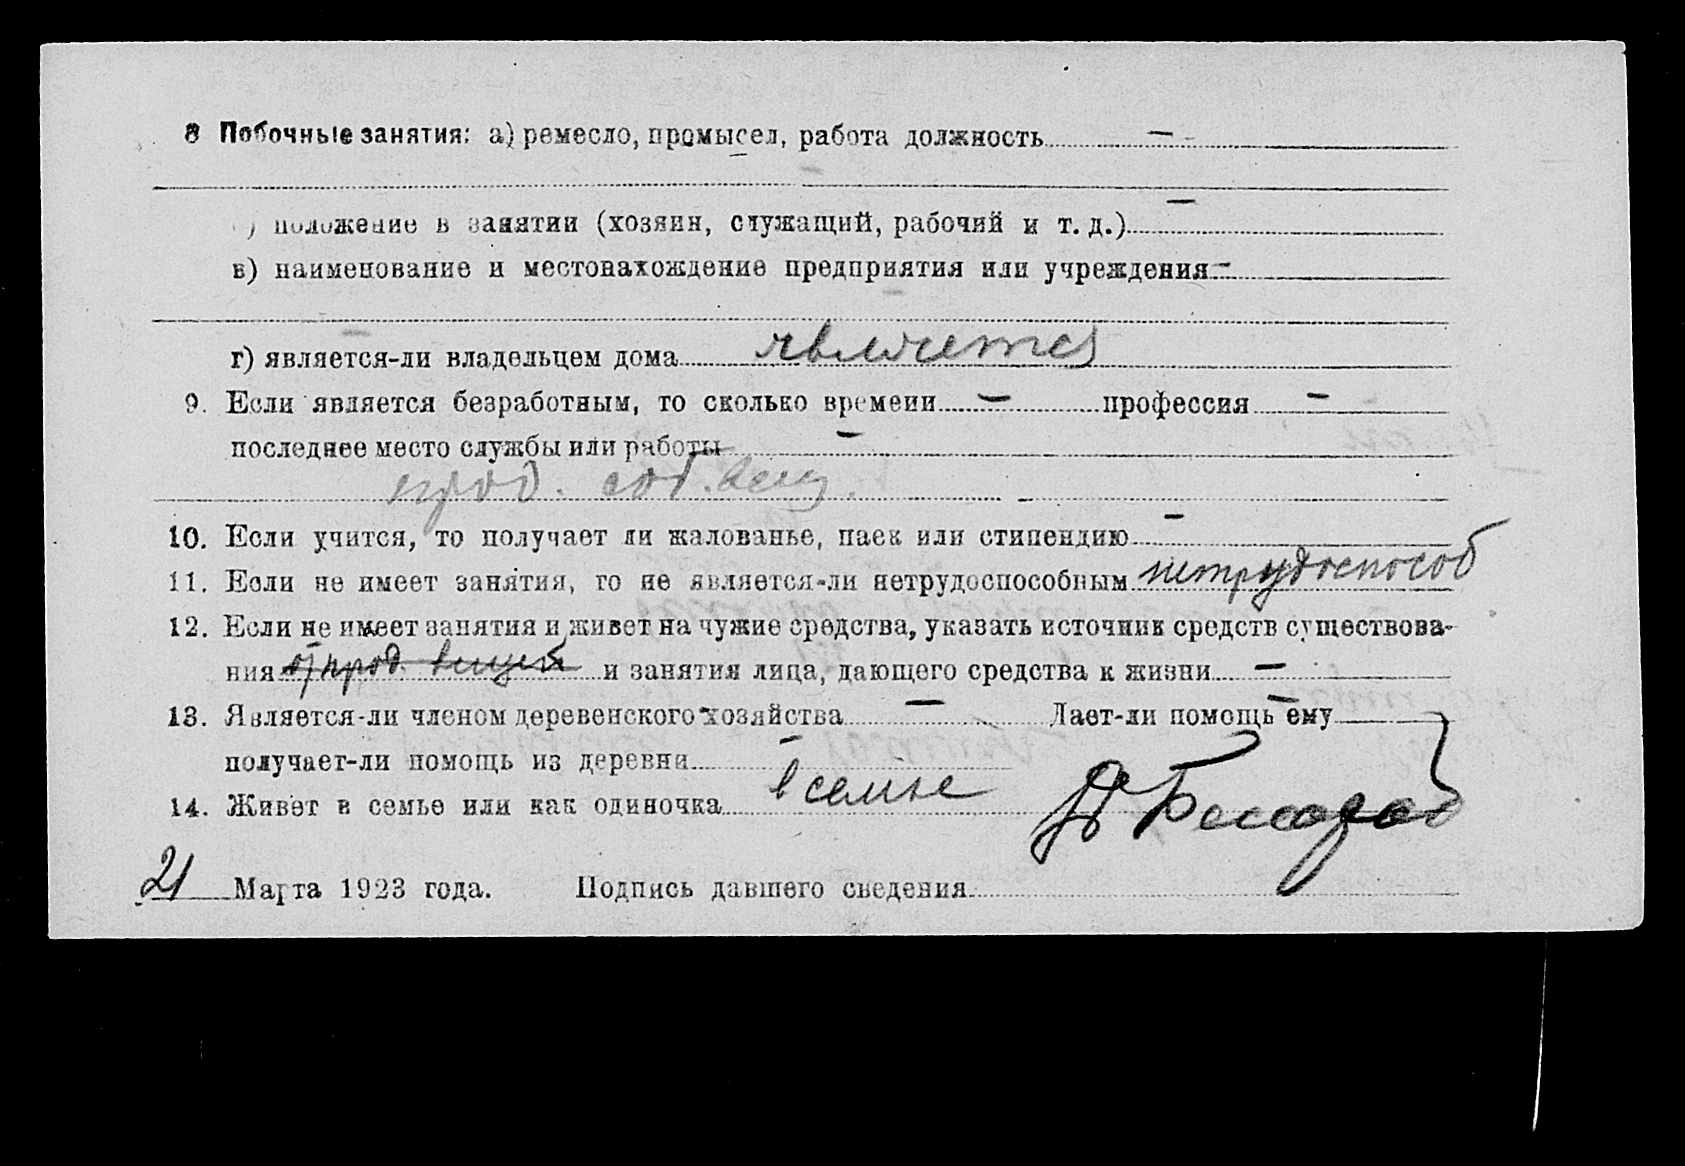 8 Побочные занятия: а) ремесло, промысел, работа должность —
) положение в занятии (хозяин, служащий, рабочий и т. д.) —
в) наименование и местонахождение предприятия или учреждения —
г) является-ли владельцем дома является
9. Если является безработным, то сколько времени — профессия —
последнее место службы или работы —
прод. соб. вещ.
10. Если учится, то получает ли жалованье, паек или стипендию —
11. Если не имеет занятия, то не является-ли нетрудоспособным нетрудоспособ
12. Если не имеет занятия и живет на чужие средства, указать источник средств существова-
ния от прод. вещей и занятия лица, дающего средства к жизни —
13. Является-ли членом деревенского хозяйства — Дает-ли помощь ему —
получает-ли помощь из деревни —
14. Живет в семье или как одиночка в семье
21 Марта 1923 года. Подпись давшего сведения